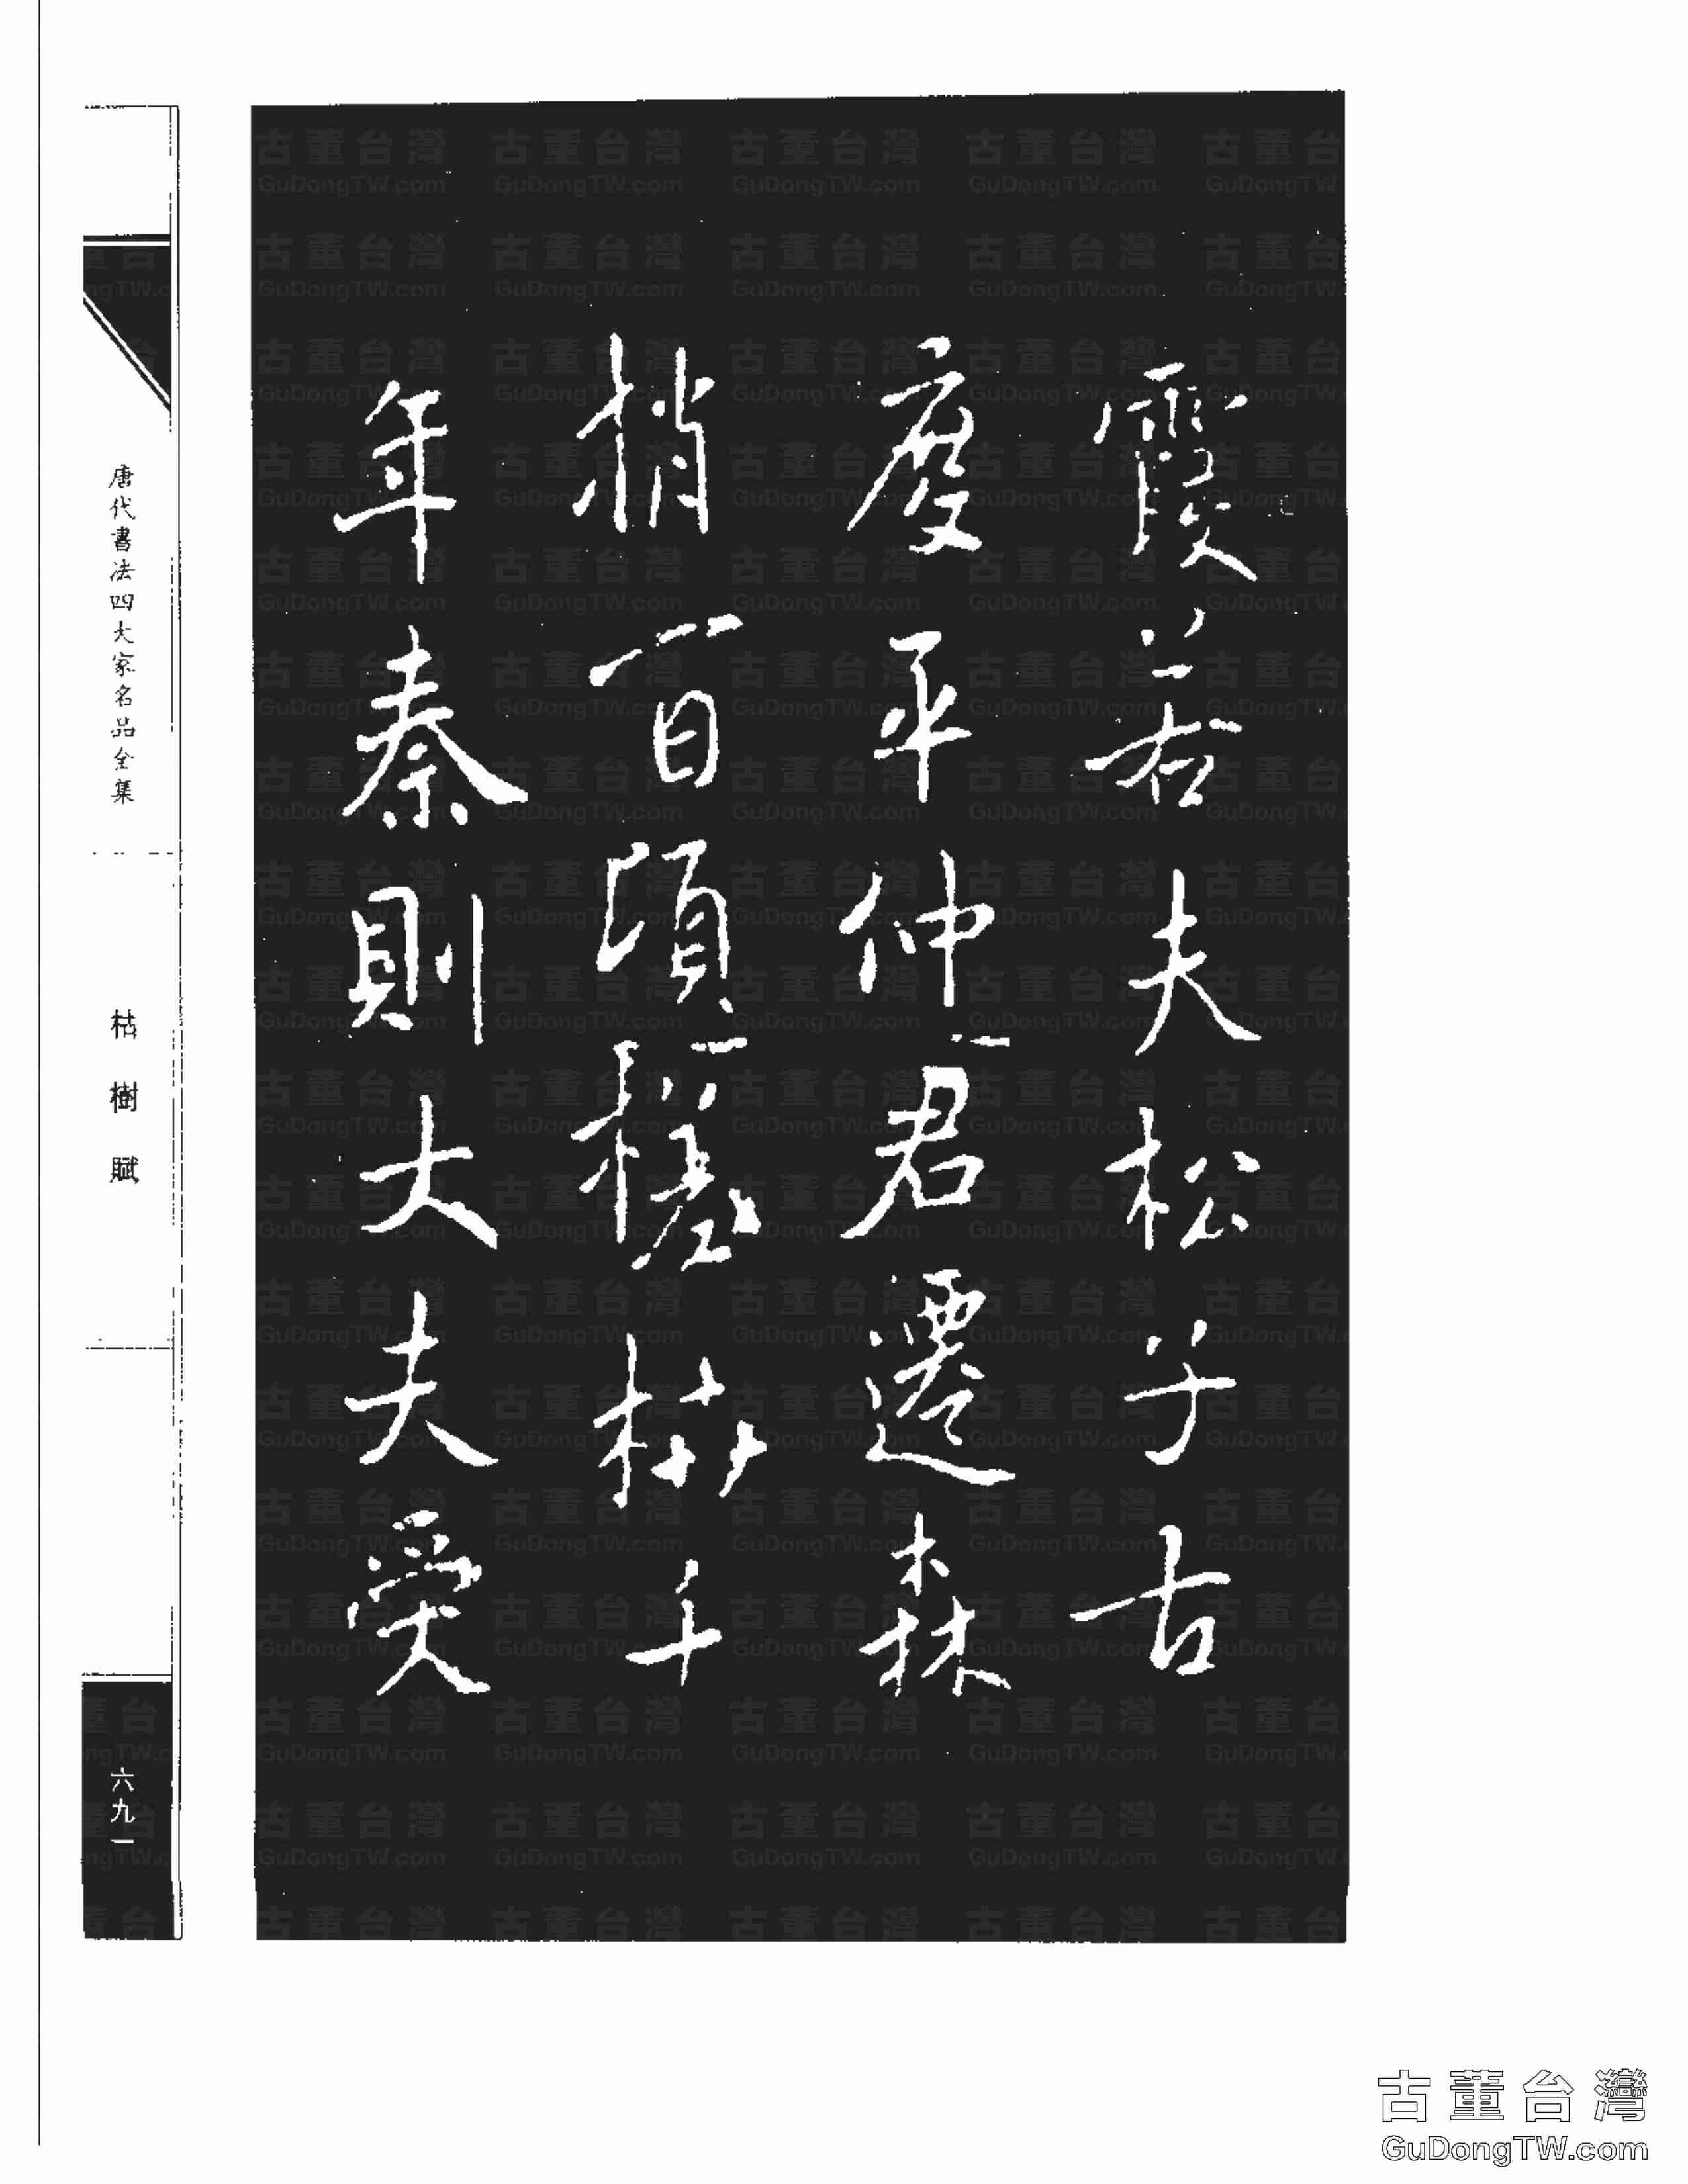 霞若夫松子古
度平仲君遷森
梢百頃槎枿千
年秦則大夫受
唐代書法四大家名品全集
枯樹賦
六九一
古董台灣
GuDongTW.com